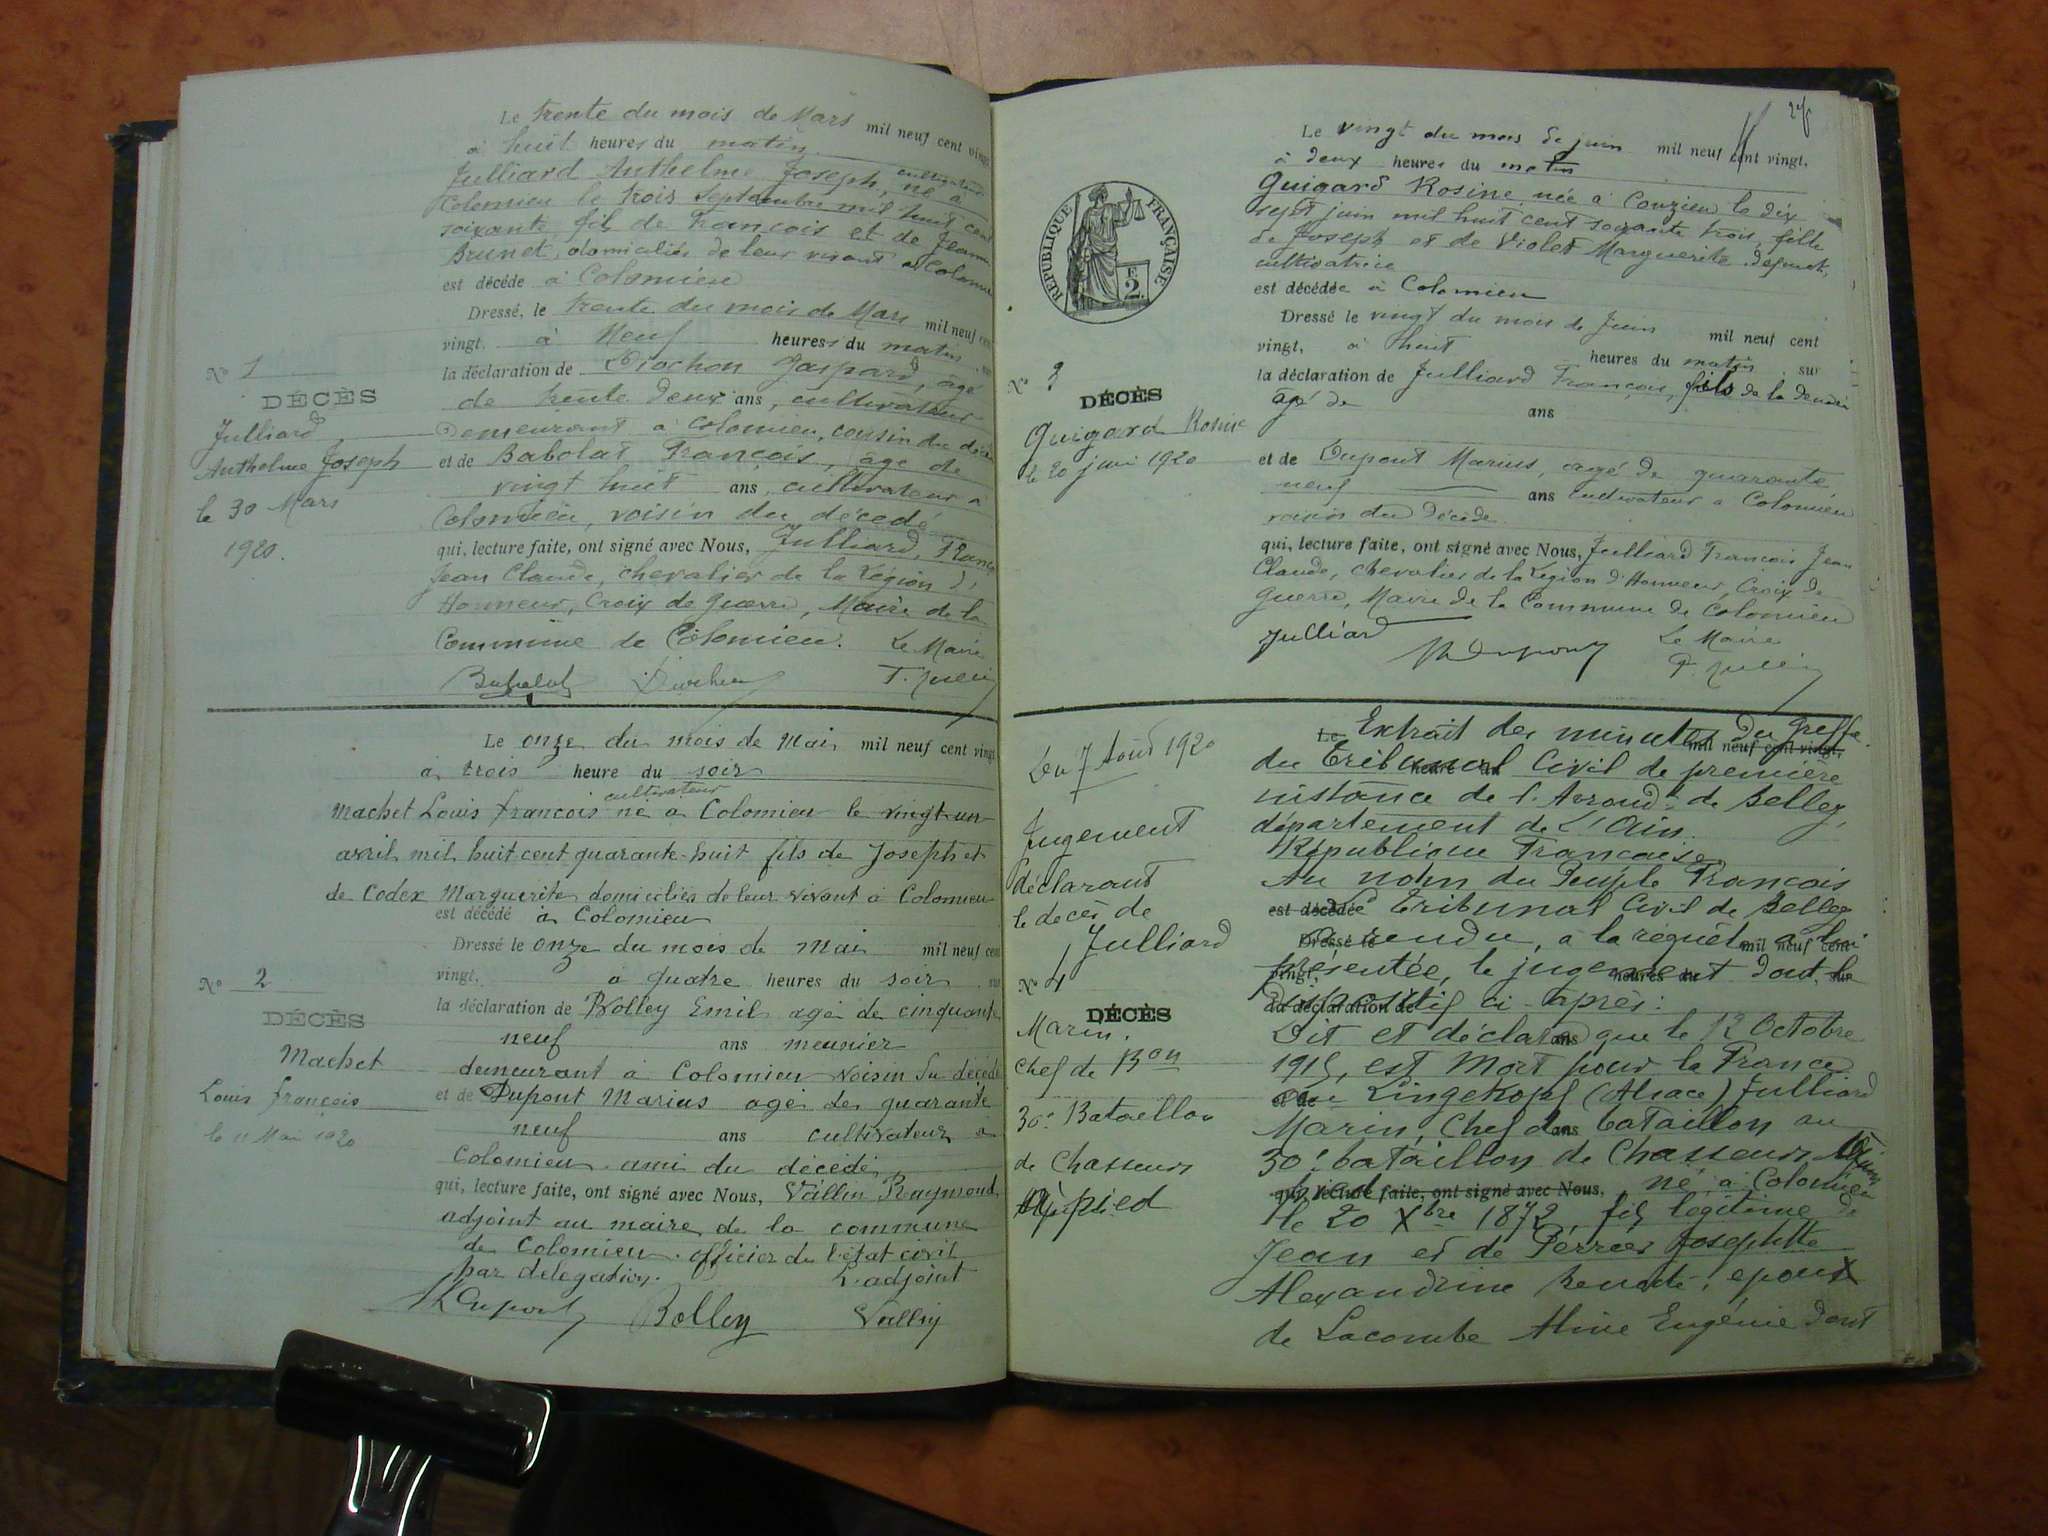 Le trente du mois de Mars mil neuf cent vingt
à huit heures du matin
cultivateur
Julliard Anthelme Joseph, né à
Colomieu le trois Septembre mil huit cent
soixante fils de François et de Jeanne
Brunet, domiciliés de leur vivant à Colomieu
est décédé à Colomieu
Dressé, le trente du mois de Mars mil neuf cent
vingt, à Neuf heures du matin sur
la déclaration de Diochon Gaspard, âgé
de trente deux ans, cultivateur
Demeurant à Colomieu, cousin du décédé
et de Babolat François, âgé de
vingt huit ans, cultivateur à
Colomieu, voisin du décédé
qui, lecture faite, ont signé avec Nous, Julliard, François
Jean Claude, chevalier de la Légion d'
Honneur, Croix de guerre, Maire de la
Commune de Colomieu. Le Maire
Babolat Diochon
N° 1
DÉCÈS
Julliard
Anthelme Joseph
le 30 Mars
1920.
Le onze du mois de Mai mil neuf cent vingt
à trois heure du soir
cultivateur
Machet Louis françois né à Colomieu le vingt-un
avril mil huit cent quarante-huit fils de Joseph et
de Codex Marguerite domiciliés de leur vivant à Colomieu
est décédé à Colomieu
Dressé le onze du mois de Mai mil neuf cent
vingt, à quatre heures du soir sur
la déclaration de Bolley Emile agé de cinquante
neuf ans meunier
demeurant à Colomieu voisin du décédé
et de Dupont Marius agé de quarante
neuf ans cultivateur à
Colomieu ami du décédé,
qui, lecture faite, ont signé avec Nous, Vallin Raymond
adjoint au maire de la commune
de Colomieu. officier de l'état civil
par délégation. L'adjoint
M Dupont Bolley Vallin
N° 2
DÉCÈS
Machet
Louis françois
le 11 Mai 1920
Le vingt du mois de juin mil neuf cent vingt,
à deux heures du matin
Guigard Rosine, née à Conzieu le dix
sept juin mil huit cent soixante trois, fille
de Joseph et de Violet Marguerite défunts,
cultivatrice
est décédée à Colomieu
Dressé le vingt du mois de Juin mil neuf cent
vingt, à huit heures du matin sur
la déclaration de Julliard François, fils de la
agé de ans
et de Dupont Marius, agé de quarante
neuf ans cultivateur à Colomieu
voisin du décédé
qui, lecture faite, ont signé avec Nous, Julliard François Jean
Claude, chevalier de la Légion d'Honneur, Croix de
guerre, Maire de la Commune de Colomieu
Julliard M Dupont Le Maire
RÉPUBLIQUE FRANÇAISE
F.
2.
N° 3
DÉCÈS
Guigard Rosine
le 20 juin 1920
Le Extrait des minutes du Greffe
mil neuf cent vingt,
du Tribunal Civil de première
instance de l'Arrondt de Belley,
département de L'Ain.
République Française
Au nom du Peuple Français
est décédée Tribunal Civil de Belley
Dressé le a rendu, à la requête à lui mil neuf cent
vingt, présentée, le jugement dont le heures du sur
la déclaration de Dispositif ci-après:
Dit et déclare que le 12 Octobre ans
1915, est Mort pour la France
et de au Lingekopf (Alsace) Julliard
Marin, Chef de bataillon au ans
30e bataillon de Chasseurs à
qui, lecture faite, ont signé avec Nous, pied né à Colomieu
le 20 Xbre 1872, fils légitime de
Jean et de Perrier Josephtte
Alexandrine époux
de Lacombe Aline Eugénie dont
Du 7 Août 1920
Jugement
déclarant
le décès de
Julliard
N° 4
DÉCÈS
Marin.
Chef de Bon
30e Bataillon
de Chasseurs
à pied